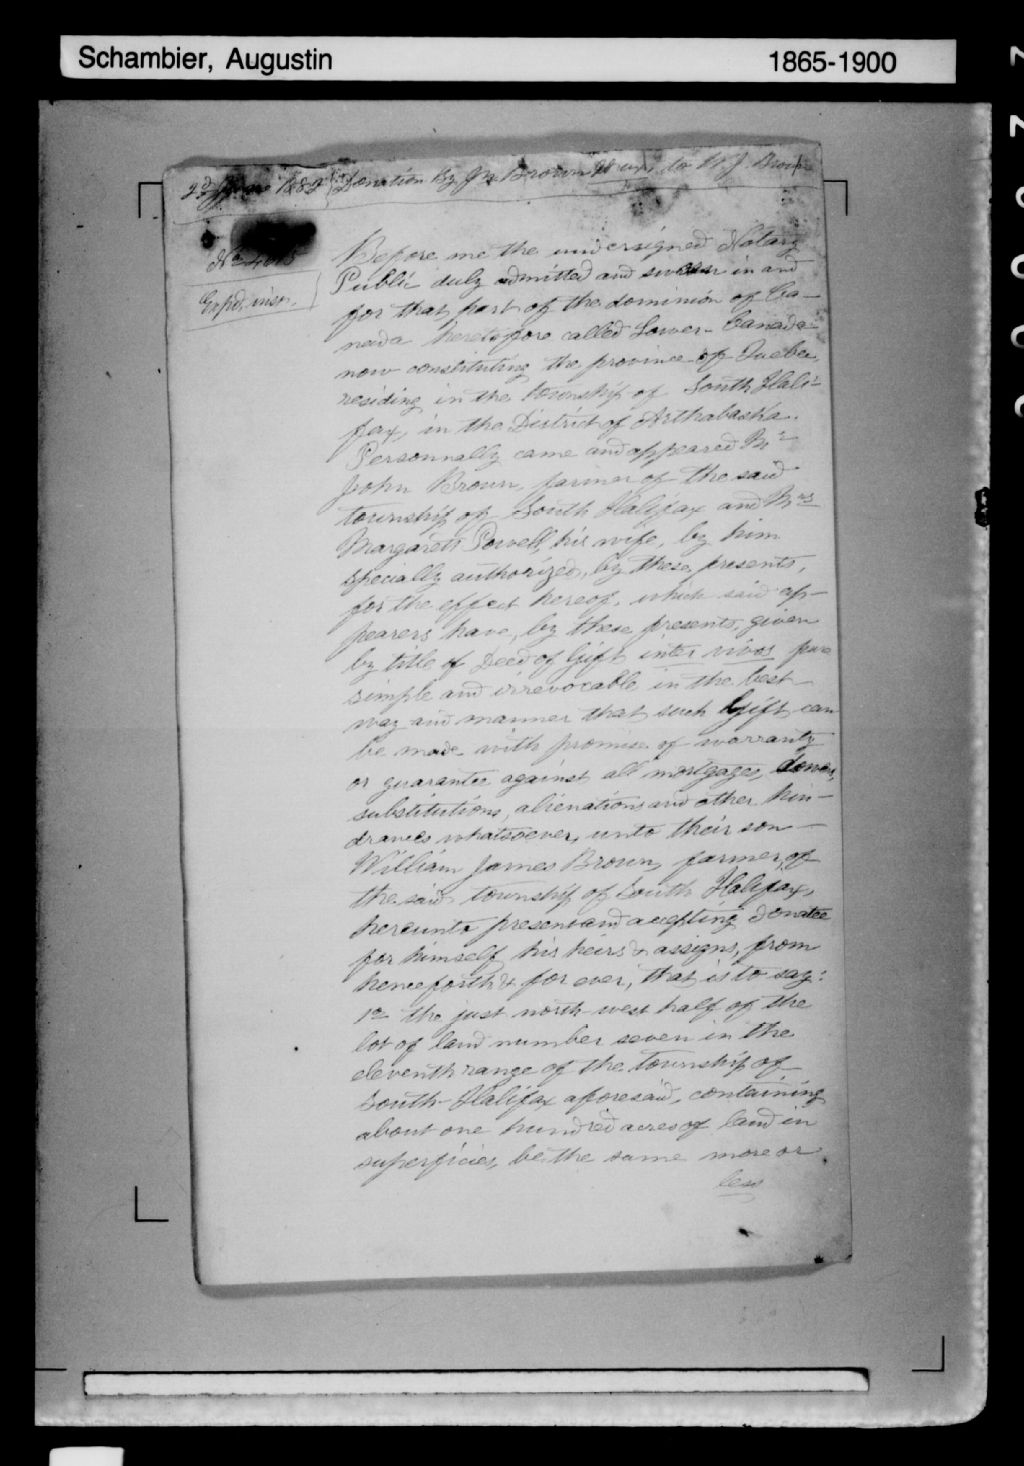 Schambier, Augustin 1865-1900
Donation By Jn Brown & ux, to W. J. Brown
No
Before me the undersigned Notary
Public duly admitted and sworn in and
for that part of the dominion of Ca-
nada heretofore called Lower-Canada
now constituting the province of Quebec,
residing in the township of South Hali-
fax, in the District of Arthabaska.
Personnally came and appeared Mr
John Brown, farmer of the said
township of South Halifax and Mrs
Margaret Powell, his wife, by him
specially authorized, by these presents,
for the effect hereof, which said ap-
pearers have, by these presents, given
by title of Deed of Gift inter vivos pure
simple and irrevocable in the best
way and manner that such Gift can
be made with promise of warranty
or guarantee against all mortgages, dowers,
substitutions, alienations and other hin-
drances whatsoever, unto their son
William James Brown, farmer, of
the said township of South Halifax,
hereunto present and accepting donatee
for himself his heirs & assigns, from
henceforth & for ever, that is to say:
1o the just north west half of the
lot of land number seven in the
eleventh range of the township of
South-Halifax aforesaid, containing
about one hundred acres of land in
superficies, be the same more or
less